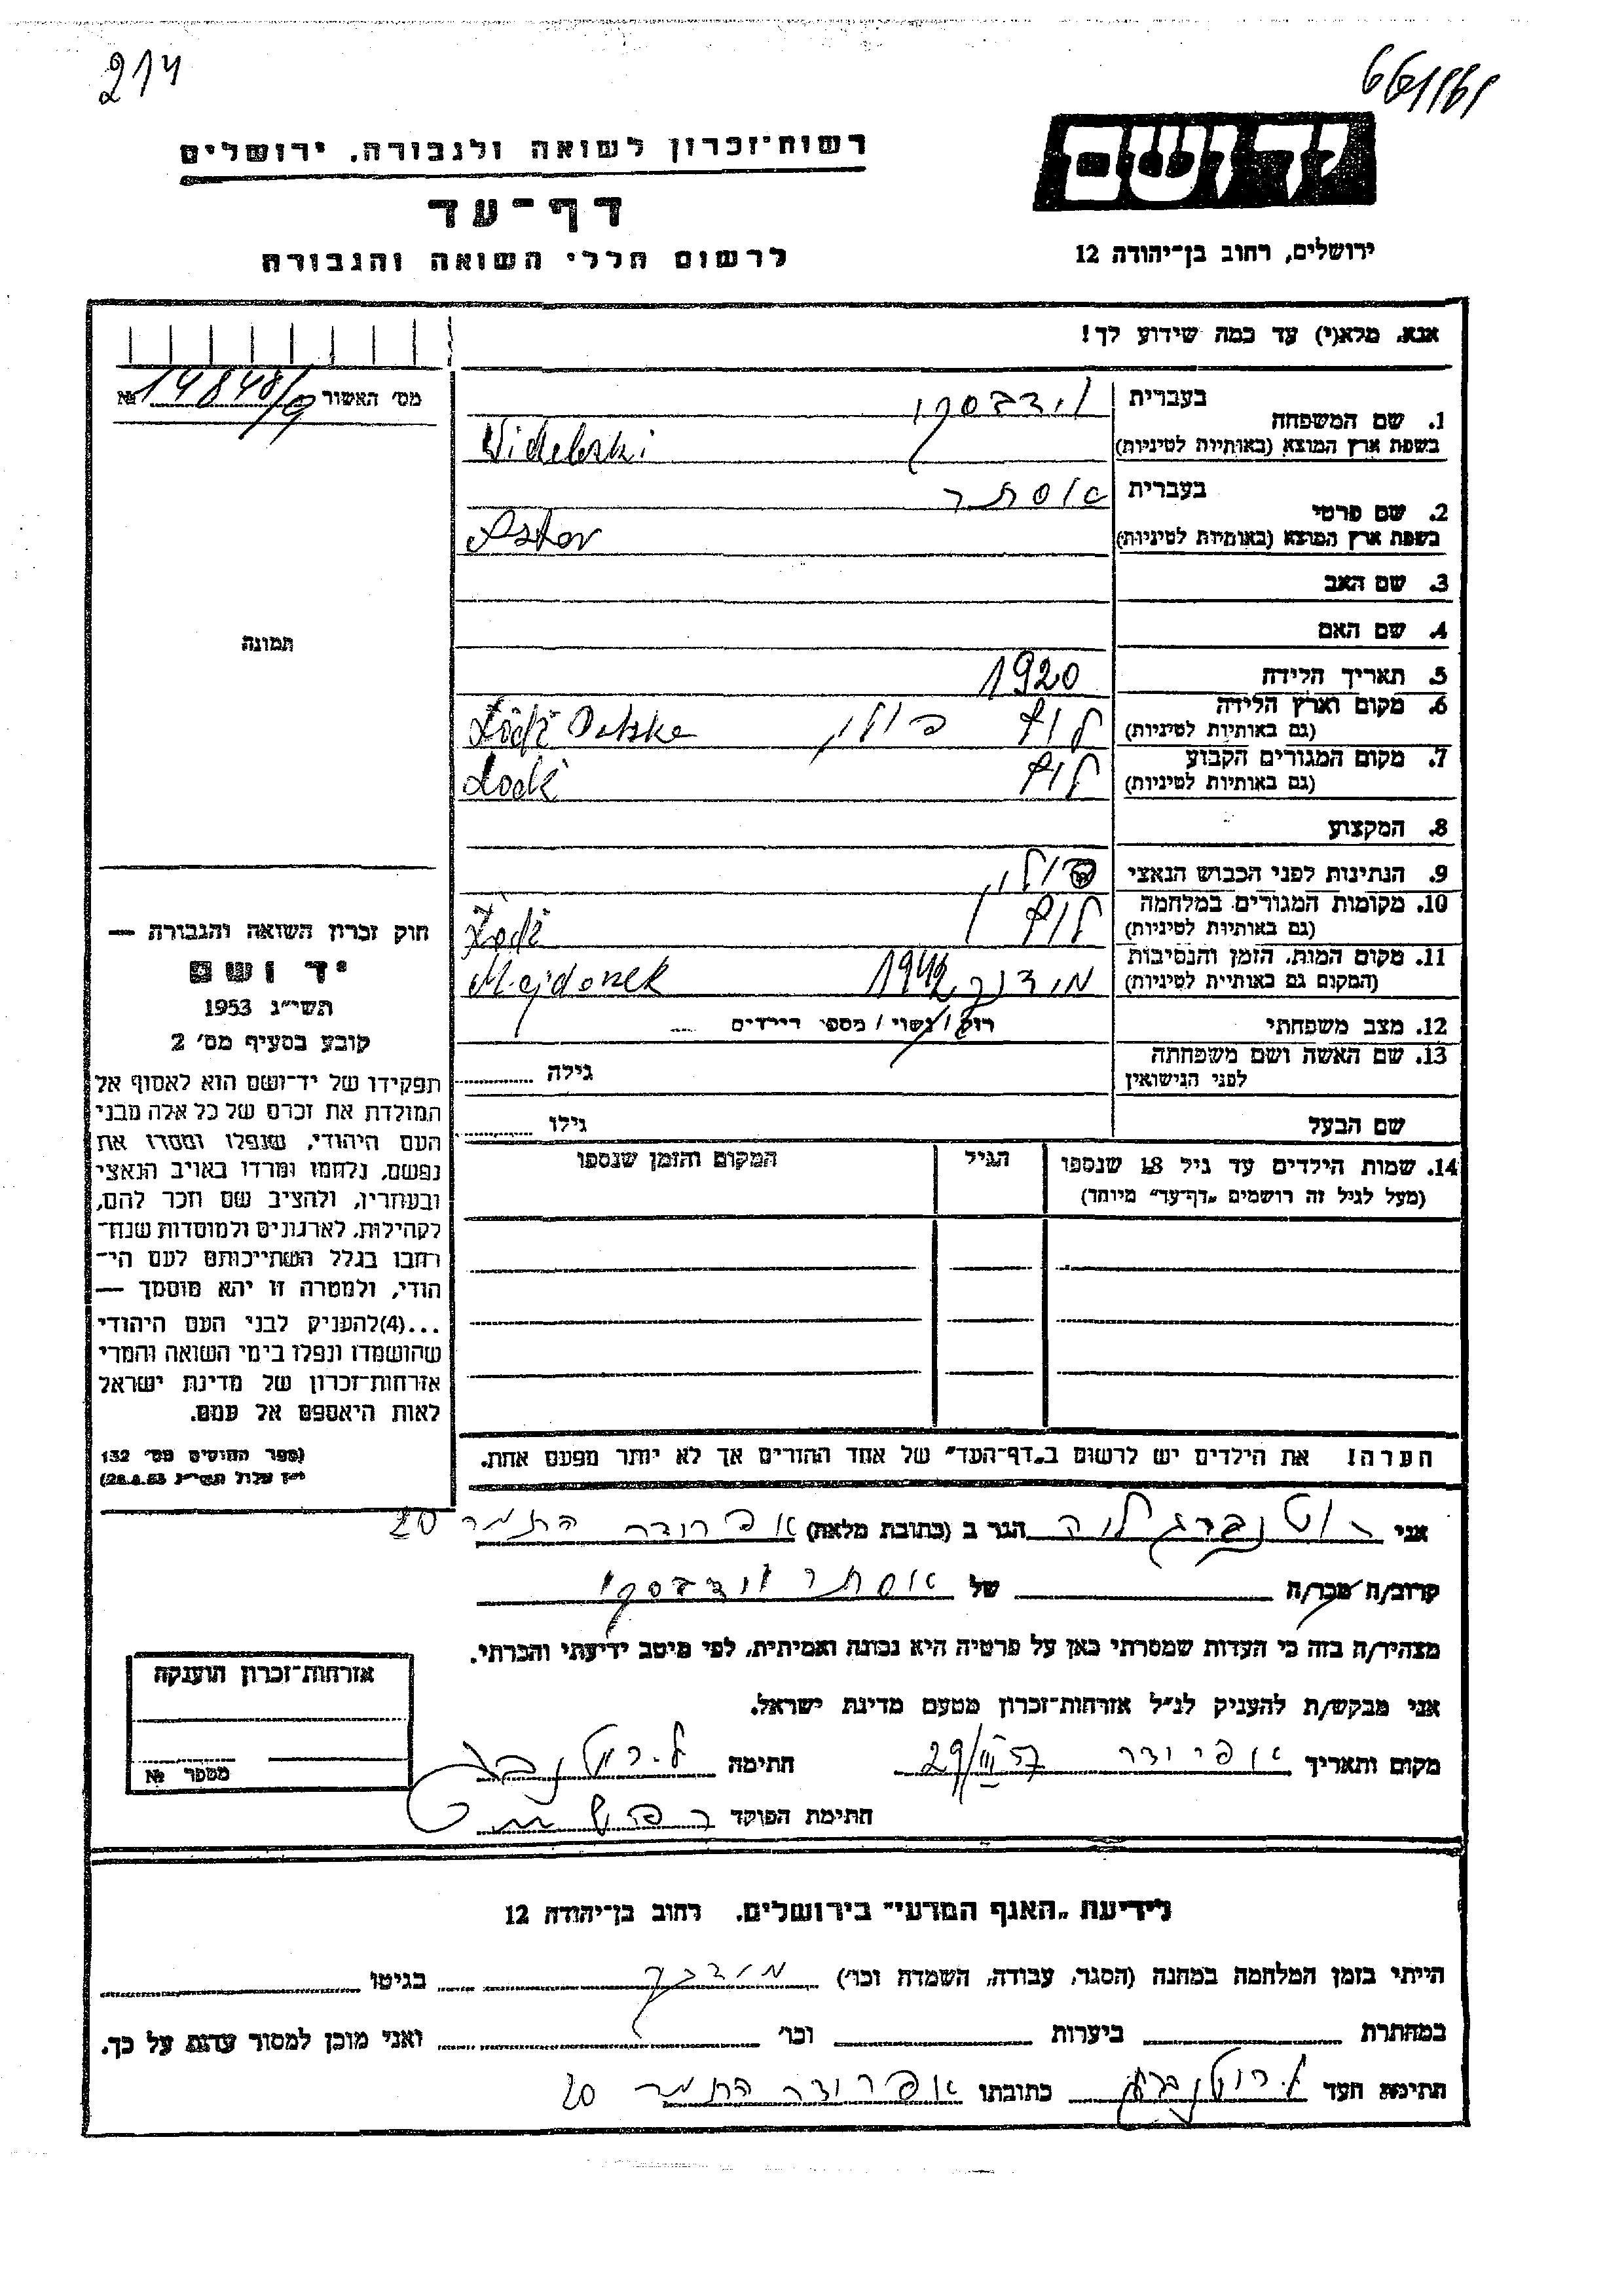 214
יד ושם
רשות־זכרון לשואה ולגבורה, ירושלים
דף־עד
לרשום חללי השואה והגבורה
ירושלים, רחוב בן־יהודה 12
אנא, מלא(י) עד כמה שידוע לך!
מס׳ האשור № 14848/9
1. שם המשפחה
בעברית וידבסקי
בשפת ארץ המוצא (באותיות לטיניות) Videbski
2. שם פרטי
בעברית אסתר
בשפת ארץ המוצא (באותיות לטיניות) Ester
3. שם האב
4. שם האם
תמונה
5. תאריך הלידה 1920
6. מקום וארץ הלידה לודז פולין Łódź Polska
(גם באותיות לטיניות)
7. מקום המגורים הקבוע לודז Łodź
(גם באותיות לטיניות)
8. המקצוע
9. הנתינות לפני הכבוש הנאצי פולין
10. מקומות המגורים במלחמה לודז Łodź
(גם באותיות לטיניות)
11. מקום המות, הזמן והנסיבות מידנק 1942 Majdanek
(המקום גם באותיות לטיניות)
12. מצב משפחתי רוק / נשוי / מספר הילדים
13. שם האשה ושם משפחתה
לפני הנישואין
גילה
שם הבעל גילו
14. שמות הילדים עד גיל 18 שנספו הגיל המקום והזמן שנספו
(מעל לגיל זה רושמים „דף־עד״ מיוחד)
חוק זכרון השואה והגבורה —
יד ושם
תשי״ג 1953
קובע בסעיף מס׳ 2
תפקידו של יד־ושם הוא לאסוף אל
המולדת את זכרם של כל אלה מבני
העם היהודי, שנפלו ומסרו את
נפשם, נלחמו ומרדו באויב הנאצי
ובעוזריו, ולהציב שם וזכר להם,
לקהילות, לארגונים ולמוסדות שנח־
רבו בגלל השתייכותם לעם הי־
הודי, ולמטרה זו יהא מוסמך —
...(4)להעניק לבני העם היהודי
שהושמדו ונפלו בימי השואה והמרי
אזרחות־זכרון של מדינת ישראל
לאות היאספם אל עמם.
(ספר החוקים מס׳ 132
י״ז אלול תשי״ג 28.8.53)
הערה! את הילדים יש לרשום ב„דף־העד״ של אחד ההורים אך לא יותר מפעם אחת.
אני רוטנברג לוה הגר ב (כתובת מלאה) אפרודר התמר 20
קרוב/ה מכר/ה של אסתר וידבסקי
מצהיר/ה בזה כי העדות שמסרתי כאן על פרטיה היא נכונה ואמיתית, לפי מיטב ידיעתי והכרתי.
אני מבקש/ת להעניק לנ״ל אזרחות־זכרון מטעם מדינת ישראל.
מקום ותאריך אפרידר 29/III 57 חתימה ל. רוטנברג
חתימת הפוקד
אזרחות־זכרון הוענקה
מספר №
לידיעת „האגף המדעי״ בירושלים, רחוב בן־יהודה 12
הייתי בזמן המלחמה במחנה (הסגר, עבודה, השמדה וכו׳) מידנק בגיטו
במחתרת ביערות וכו׳ ואני מוכן למסור עדות על כך.
חתימת העד ל. רוטנברג כתובתו אפרודר התמר 20